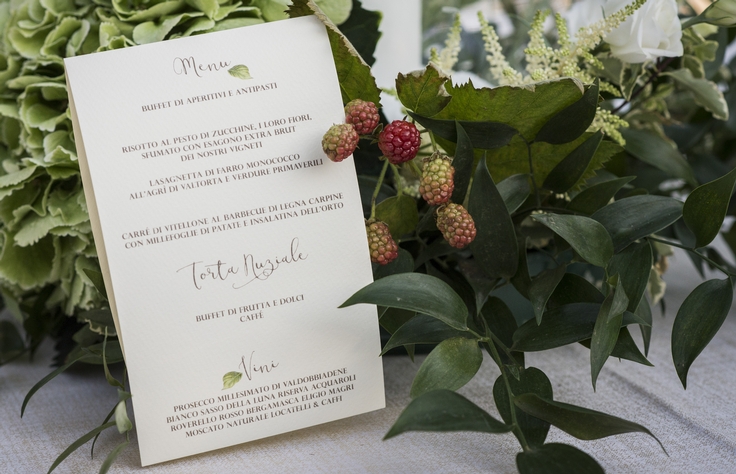 Menu
BUFFET DI APERITIVI E ANTIPASTI
RISOTTO AL PESTO DI ZUCCHINE, I LORO FIORI,
SFUMATO CON ESAGONO EXTRA BRUT
DEI NOSTRI VIGNETI
LASAGNETTA DI FARRO MONOCOCCO
ALL'AGRÌ DI VALTORTA E VERDURE PRIMAVERILI
CARRÉ DI VITELLONE AL BARBECUE DI LEGNA CARPINE
CON MILLEFOGLIE DI PATATE E INSALATINA DELL'ORTO
Torta Nuziale
BUFFET DI FRUTTA E DOLCI
CAFFÈ
Vini
PROSECCO MILLESIMATO DI VALDOBBIADENE
BIANCO SASSO DELLA LUNA RISERVA ACQUAROLI
ROVERELLO ROSSO BERGAMASCA ELIGIO MAGRI
MOSCATO NATURALE LOCATELLI & CAFFI